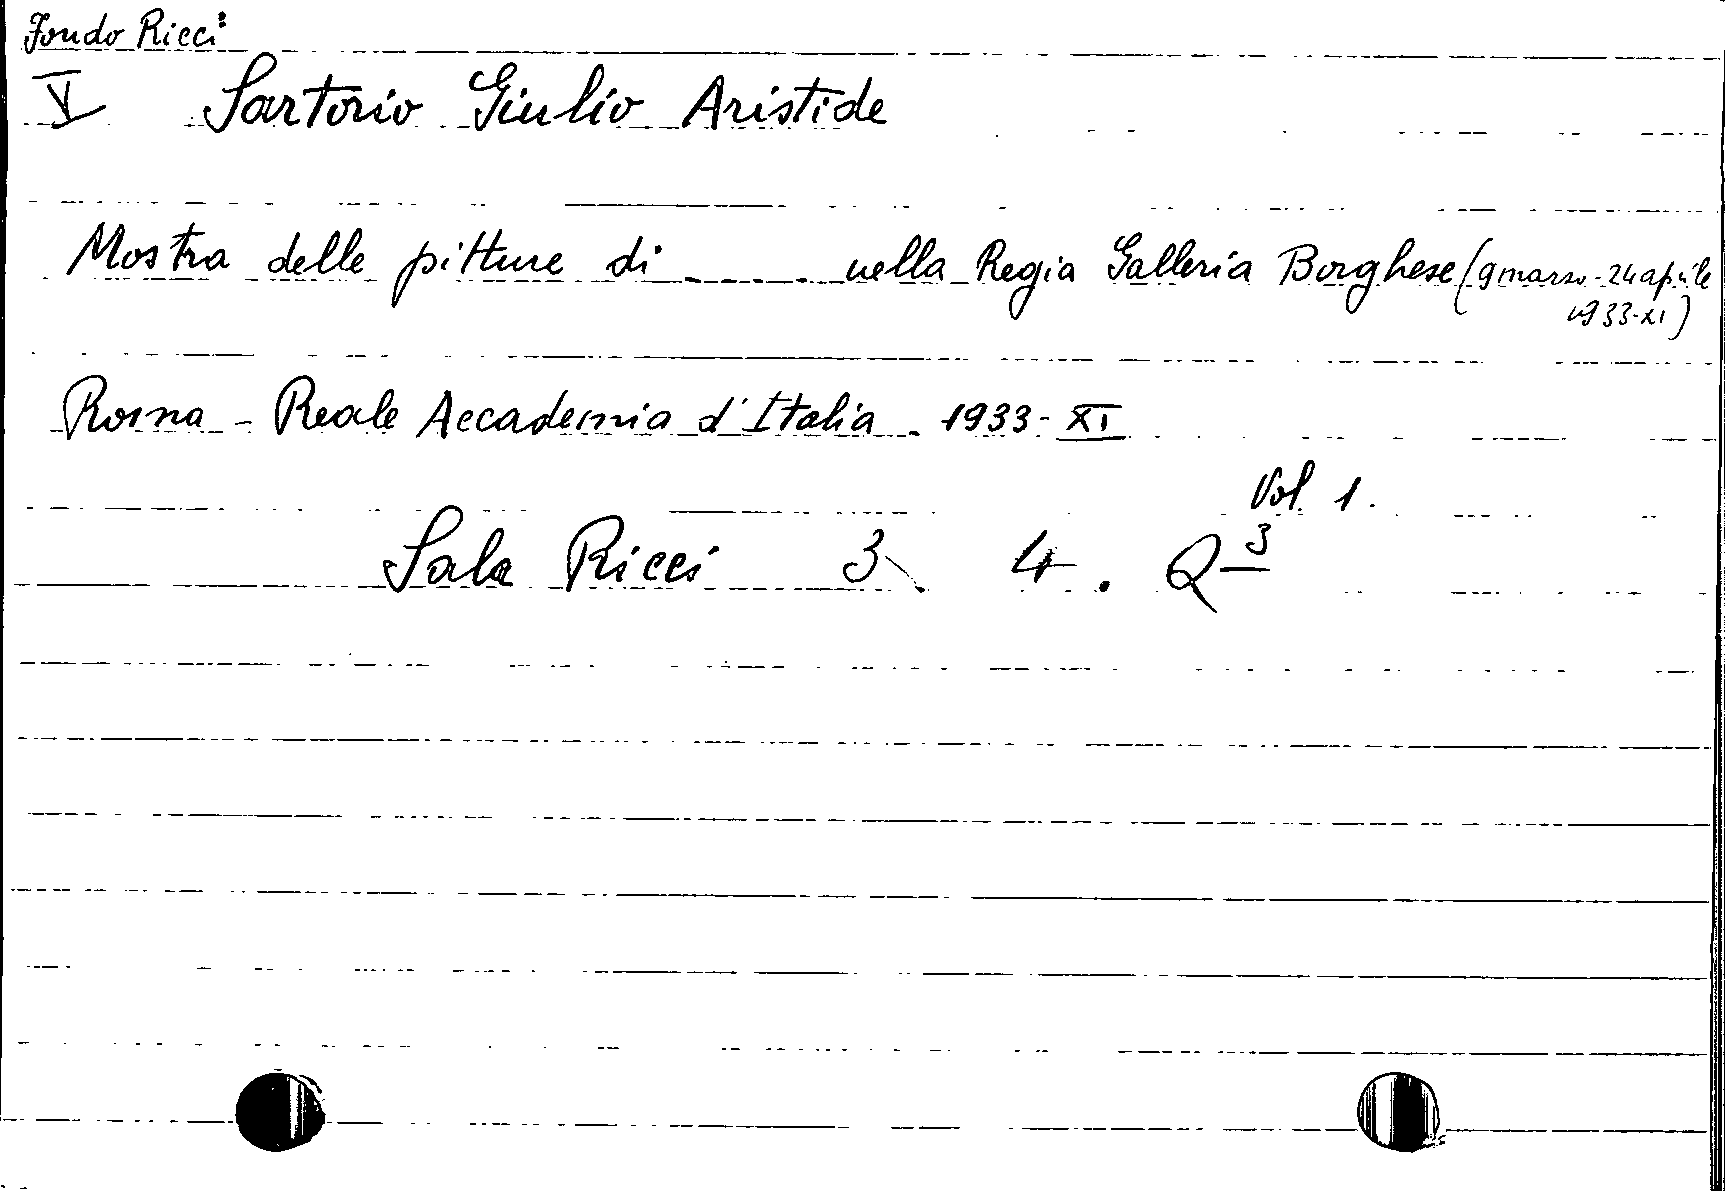 Fondo Ricci:
V Sartorio Giulio Aristide
Mostra delle pitture di ...... nella Regia Galleria Borghese (9 marzo - 24 aprile
1933-XI)
Roma - Reale Accademia d'Italia . 1933 - XI
Vol. 1.
Sala Ricci 3. 4. Q 3